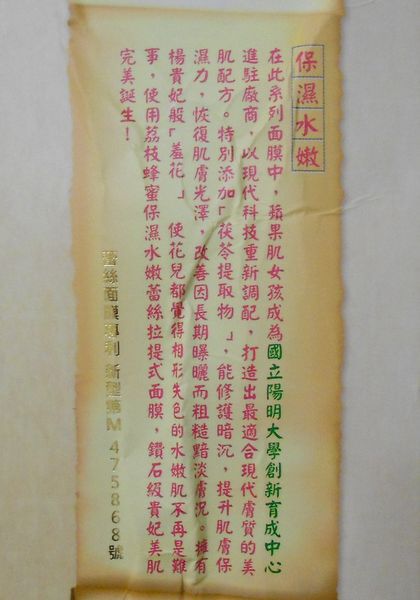 保濕水嫩
在此系列面膜中，蘋果肌女孩成為國立陽明大學創新育成中心
進駐廠商，以現代科技重新調配，打造出最適合現代膚質的美
肌配方。特別添加「茯苓提取物」，能修護暗沉，提升肌膚保
濕力，恢復肌膚光澤，改善因長期曝曬而粗糙黯淡膚況。擁有
楊貴妃般「羞花」 使花兒都覺得相形失色的水嫩肌不再是難
事，使用荔枝蜂蜜保濕水嫩蕾絲拉提式面膜，鑽石級貴妃美肌
完美誕生！
蕾絲面膜專利 新型第M 475868號